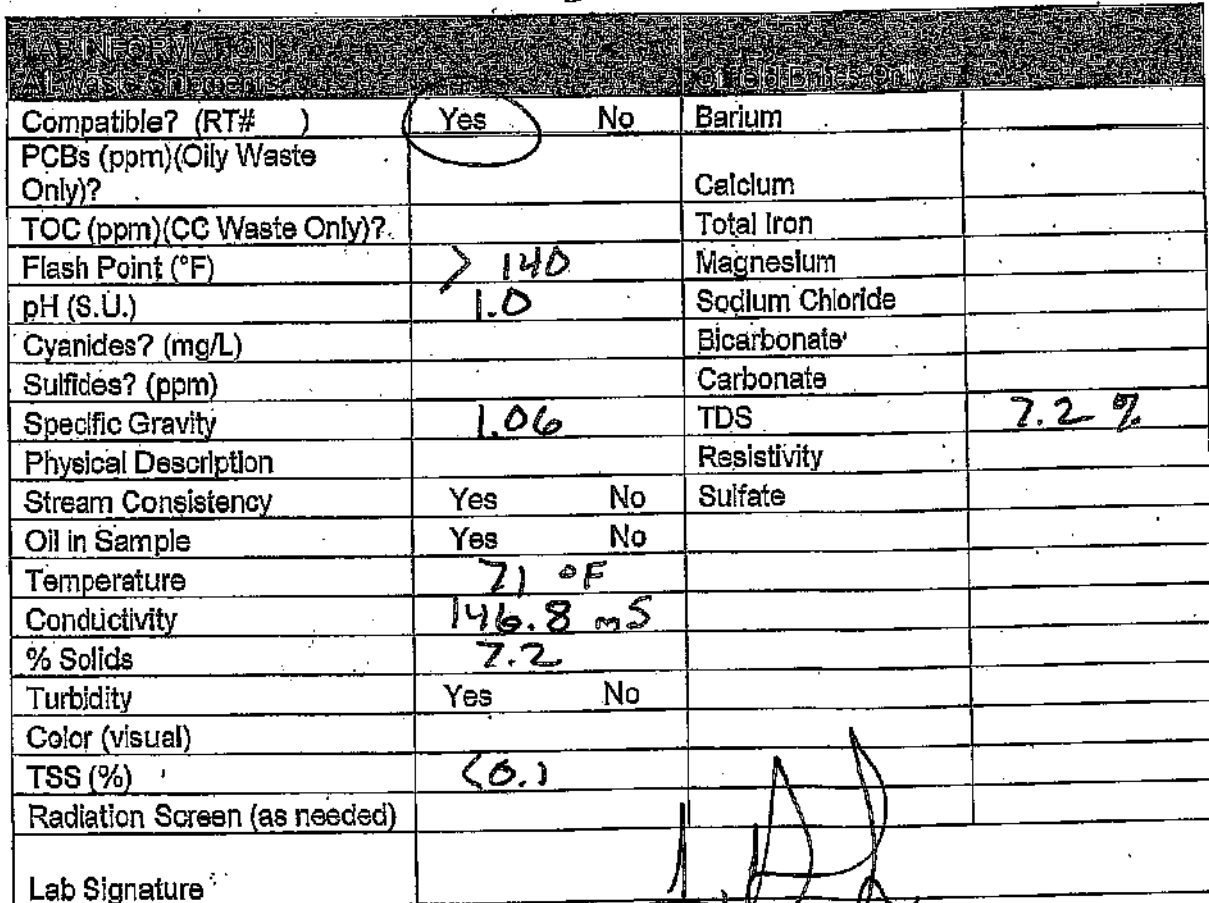 LAB INFORMATION
All Waste Shipments Oilfield Brines Only
Compatible? (RT# ) Yes No Barium
PCBs (ppm)(Oily Waste
Only)? Calcium
TOC (ppm)(CC Waste Only)? Total Iron
Flash Point (°F) > 140 Magnesium
pH (S.U.) 1.0 Sodium Chloride
Cyanides? (mg/L) Bicarbonate
Sulfides? (ppm) Carbonate
Specific Gravity 1.06 TDS 7.2 %
Physical Description Resistivity
Stream Consistency Yes No Sulfate
Oil in Sample Yes No
Temperature 71 °F
Conductivity 146.8 mS
% Solids 7.2
Turbidity Yes No
Color (visual)
TSS (%) <0.1
Radiation Screen (as needed)
Lab Signature